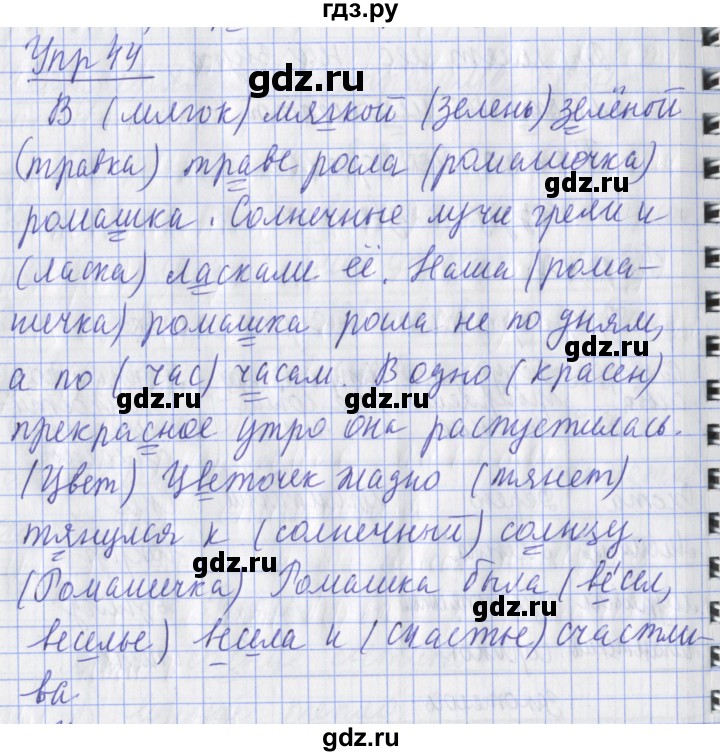 гдз.ру
Упр 44
gdz.ru
В (мягок) мягкой (зелень) зелёной
(травка) траве росла (ромашечка)
gdz.ru
ромашка. Солнечные лучи грели и
(ласка) ласкали её. Наша (рома-
шечка) ромашка росла не по дням,
gdz.ru
а по (час) часам. В одно (красен)
gdz.ru
gdz.ru
прекрасное утро она распустилась.
(Цвет) Цветочек жадно (тянет)
тянулся к (солнечный) солнцу.
gdz.ru
(Ромашечка) Ромашка была (весел,
gdz.ru
веселье) весела и (счастье) счастли-
ва